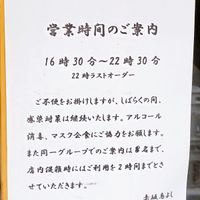 営業時間のご案内
16時30分〜22時30分
22時ラストオーダー
ご不便をお掛けしますが、しばらくの間、
感染対策は継続いたします。アルコール
消毒、マスク会食にご協力をお願します。
また同一グループでのご案内は8名まで、
店内混雑時にはご利用を2時間までとさ
せていただきます。
赤坂鳥よし